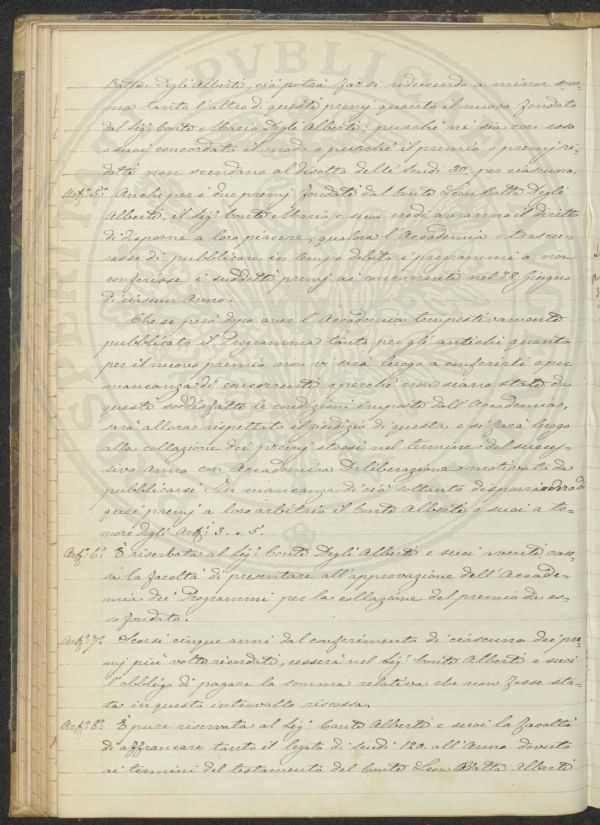 Batta Degli Alberti, ciò potrà farsi riducendo a minor som-
ma tanto l'altro di questi premj quanto il nuovo fondato
dal Sig.r Conte Mario Degli Alberti, purchè ne sia con esso
o suoi concordato il modo e purchè il premio o premj ri-
dotti non scendano al disotto delli Scudi 30. per ciascuno.
Art.º 5.º Anche per i due premj fondati dal Conte Leon Batta Degli
Alberti, il Sig.r Conte Mario e suoi eredi avranno il diritto
di disporne a loro piacere, qualora l'Accademia o trascu-
rasse di pubblicare in tempo debito i programmi o non
conferisse i suddetti premj ai concorrenti nel 28 Giugno
di ciascun Anno.
Che se però dopo aver l'Accademia tempestivamente
pubblicato il Programma tanto per gli antichi quanto
per il nuovo premio non vi sarà luogo a conferirli o per
mancanza di concorrenti o perchè non siano state da
questi soddisfatte le condizioni imposte dall'Accademia,
sarà allora rispettato il giudizio di questa e si farà luogo
alla collazione dei premj stessi nel termine del succes-
sivo anno con Accademica Deliberazione motivata da
pubblicarsi. In mancanza di ciò soltanto disporranno di
quei premj a loro arbitrio il Conte Alberti e suoi a te-
nore degli Art.i 3. e 5.
Art.º 6.º È riservata al Sig.r Conte Degli Alberti e suoi aventi cau-
sa la facoltà di presentare all'approvazione dell'Accade-
mia dei Programmi per la collazione del premio da es-
so fondato.
Art.º 7.º Scorsi cinque anni dal conferimento di ciascuno dei pre-
mj più volte ricordati, cesserà nel Sig.r Conte Alberti e suoi
l'obbligo di pagare la somma relativa che non fosse sta-
ta in questo intervallo riscossa.
Art.º 8.º È pure riservata al Sig.r Conte Alberti e suoi la facoltà
d'affrancare tanto il legato di Scudi 120. all'Anno dovuto
ai termini del testamento del Conte Leon Batta Alberti